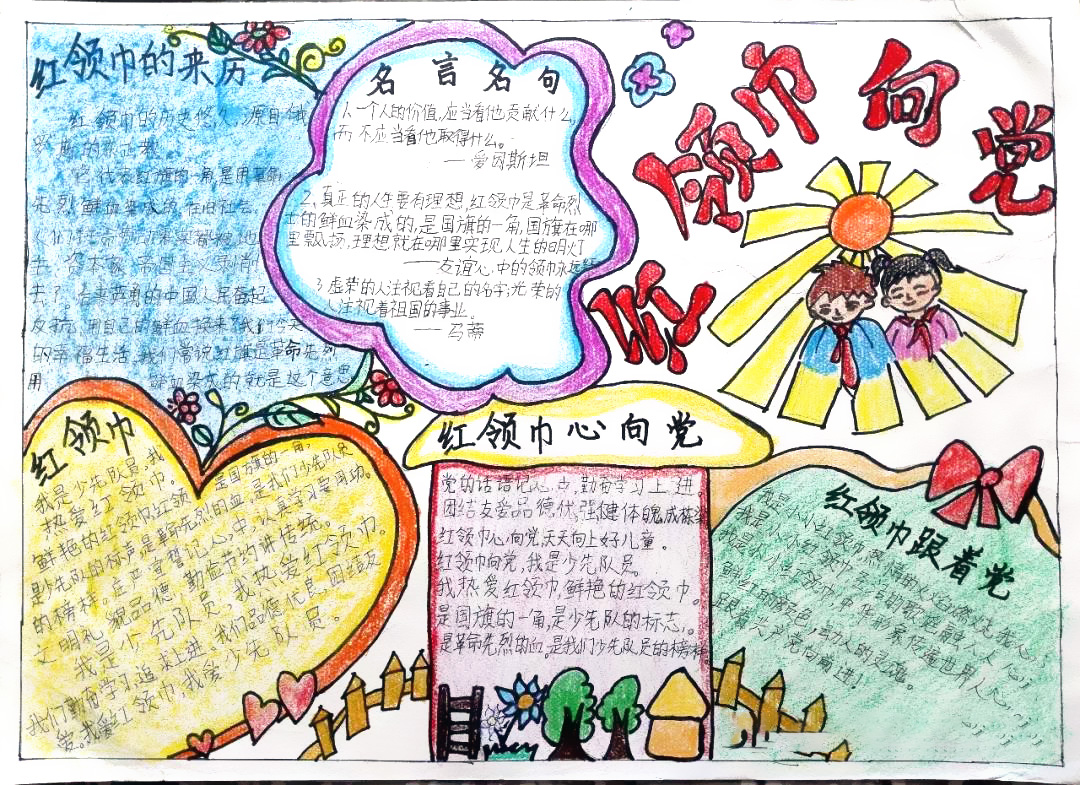 红领巾向党
红领巾的来历
红领巾的历史悠久,源自俄
代表红旗的一角,是用革命
先烈鲜血染成的,在旧社会,
去了,后来英勇的中国人民奋起
反抗,用自己的鲜血换来了我们今天
的幸福生活,我们常说红旗是革命先列
用 鲜血染成的就是这个意思
名言名句
1、一个人的价值,应当看他贡献什么,
而不应当看他取得什么。
——爱因斯坦
2、真正的人生要有理想,红领巾是革命烈
士的鲜血染成的,是国旗的一角,国旗在哪
里飘扬,理想就在哪里实现,人生的明灯
——友谊心中的领巾永远红
3虚荣的人注视着自己的名字;光荣的
人注视着祖国的事业。
——马蒂
红领巾
我是少先队员,我
热爱红领巾。
鲜艳的红领巾红领巾是国旗的一角,
是少先队的标声是革命先烈的血,是我们少先队员
的榜样。庄严宣誓记心中,认真学习要用功。
文明礼貌品德 勤俭节约讲传统。
我是少先队员,我热爱红领巾。
我们勤奋学习追求上进,我们品德优良,团结友
爱。我爱红领巾,我爱少先队员。
红领巾心向党
党的话语记心点,勤奋学习上进。
团结友爱品德优,强健体魄成栋梁
红领巾心向党,天天向上好儿童。
红领巾向党,我是少先队员。
我热爱红领巾,鲜艳的红领巾。
是国旗的一角,是少先队的标志,。
是革命先烈的血。是我们少先队员的榜样。
红领巾跟着党
我是小小红领巾
我是小小红领巾
我是小小红领巾,中华形象
鲜红的颜色,动人的
跟着共产党向前进!